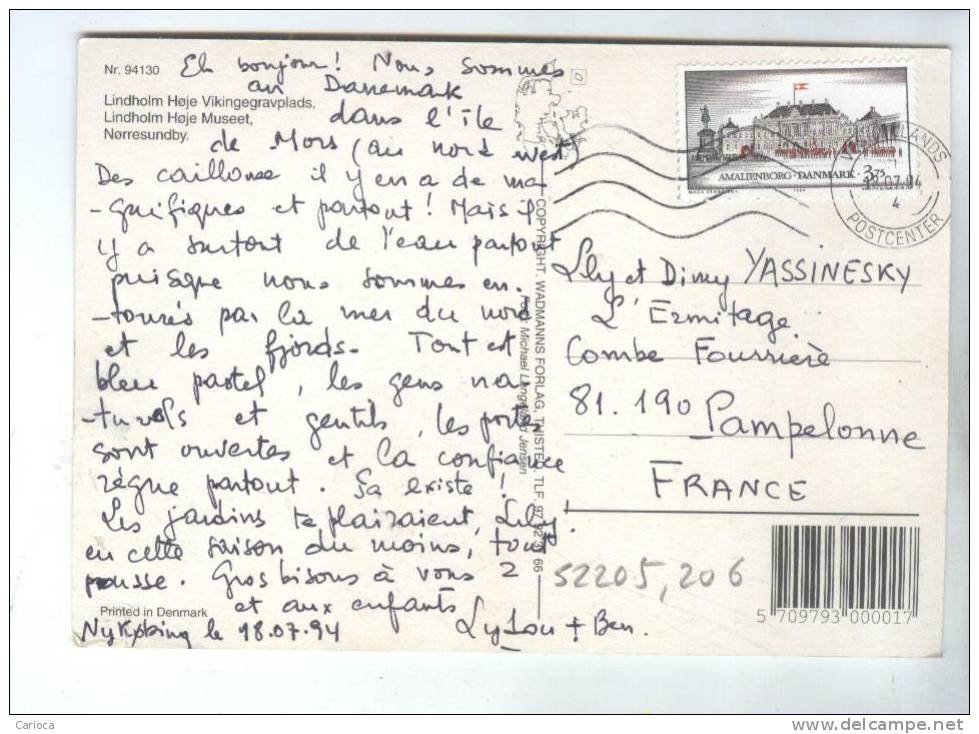 Nr. 94130
Lindholm Høje Vikingegravplads,
Lindholm Høje Museet,
Nørresundby.
Eh bonjour! Nous sommes
au Danemark
dans l'île
de Mors (au nord west)
Des caillouse il y en a de ma
-gnifiques et partout! Mais il
y a surtout de l'eau partout
puisque nous sommes en.
-tourés par la mer du nord
et les fjords. Tout est
bleu pastel, les gens na-
-turels et gentils, les portes
sont ouvertes et la confiance
règne partout. Sa existe!
Les jardins te plairaient, Lily,
en cette saison du moins, tout
pousse. Gros bisous à vous 2
et aux enfants
Lylou + Ben.
Printed in Denmark
Nykøbing le 18.07.94
COPYRIGHT. WADMANNS FORLAG, THISTED, TLF. 97 92 66
Foto: Michael Jensen
AMALIENBORG · DANMARK · 3.75
07.94
4
POSTCENTER
Lily et Dimy YASSINESKY
L'Ermitage
Combe Fourrière
81.190 Pampelonne
FRANCE
52205, 206
5 709793 000017
Carioca
www.delcampe.net